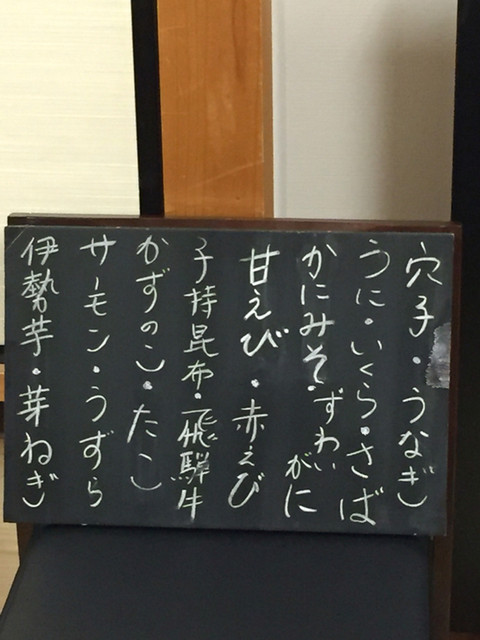 穴子・うなぎ
うに・いくら・さば
かにみそ・ずわいがに
甘えび・赤えび
子持昆布・飛騨牛
かずのこ・たこ
サーモン・うずら
伊勢芋・芽ねぎ